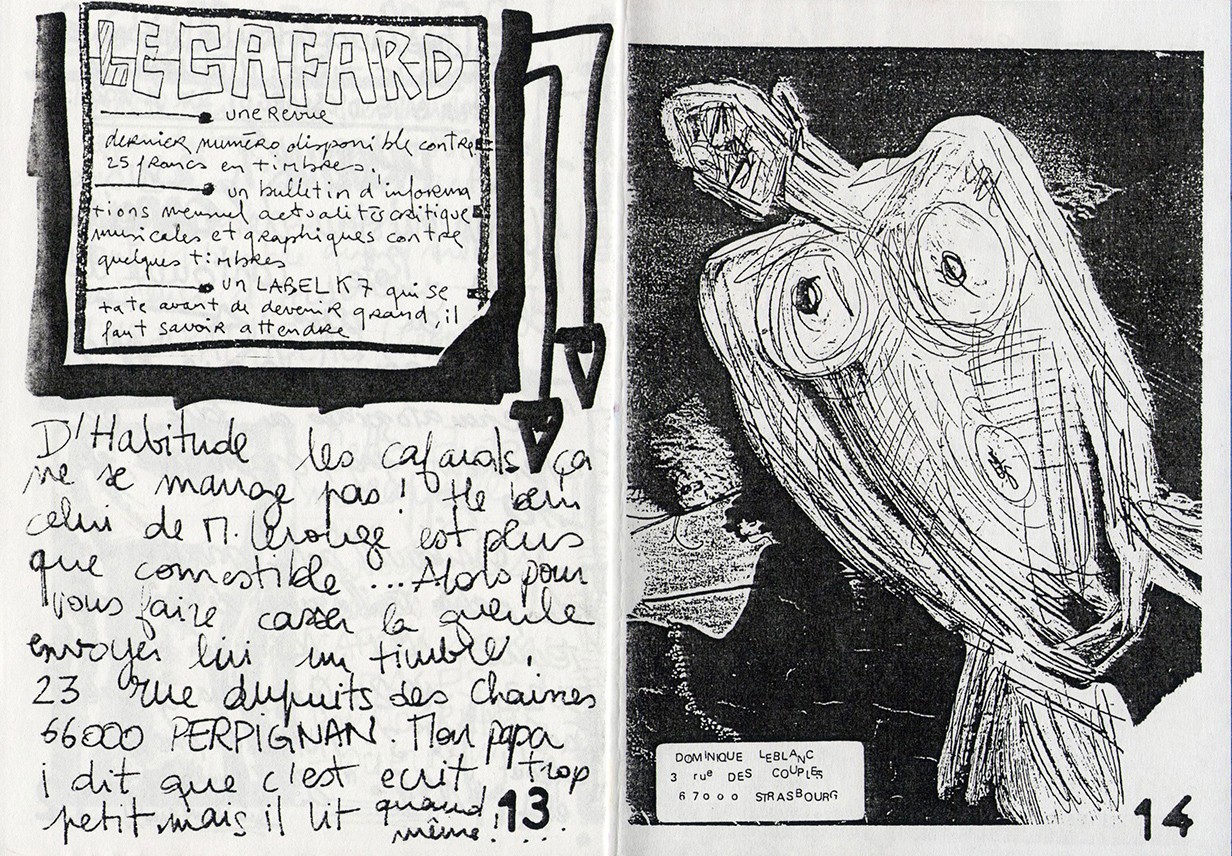 LE CAFARD
une Revue
dernier numéro disponible contre
25 francs en timbres.
un bulletin d'informa
tions mensuel actualités critique
musicales et graphiques contre
quelques timbres
un LABEL K7 qui se
tate avant de devenir grand, il
faut savoir attendre
D'Habitude les cafards ça
ne se mange pas! He bein
celui de M. Lerouge est plus
que comestible ... Alors pour
vous faire casser la gueule
envoyez lui un timbre.
23 rue du puits des chaines
66000 PERPIGNAN. Mon papa
i dit que c'est ecrit trop
petit mais il lit quand
même!...
13
DOMINIQUE LEBLANC
3 rue DES COUPLES
67000 STRASBOURG
14